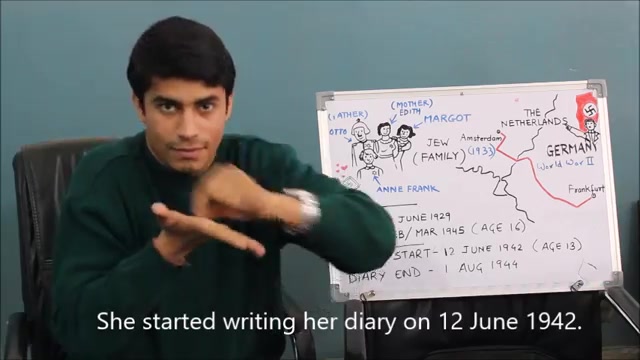 (MOTHER)
EDITH
OTTO
MARGOT
ANNE FRANK
JEW
(FAMILY)
THE
NETHERLANDS
Amsterdam
(1933)
GERMANY
World War II
Frankfurt
JUNE 1929
MAR 1945 (AGE 16)
START - 12 JUNE 1942 (AGE 13)
DIARY END - 1 AUG 1944
She started writing her diary on 12 June 1942.